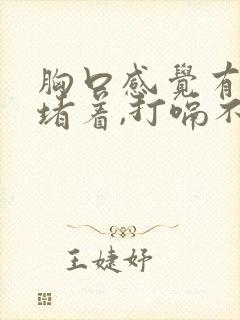 胸口感覺有
堵著,打嗝不
王婕妤